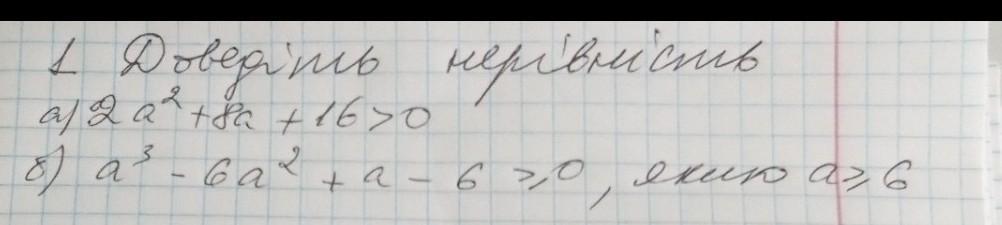 1 Доведіть нерівність
а) 2a² + 8a + 16 > 0
б) a³ - 6a² + a - 6 ⩾ 0, якщо a ⩾ 6